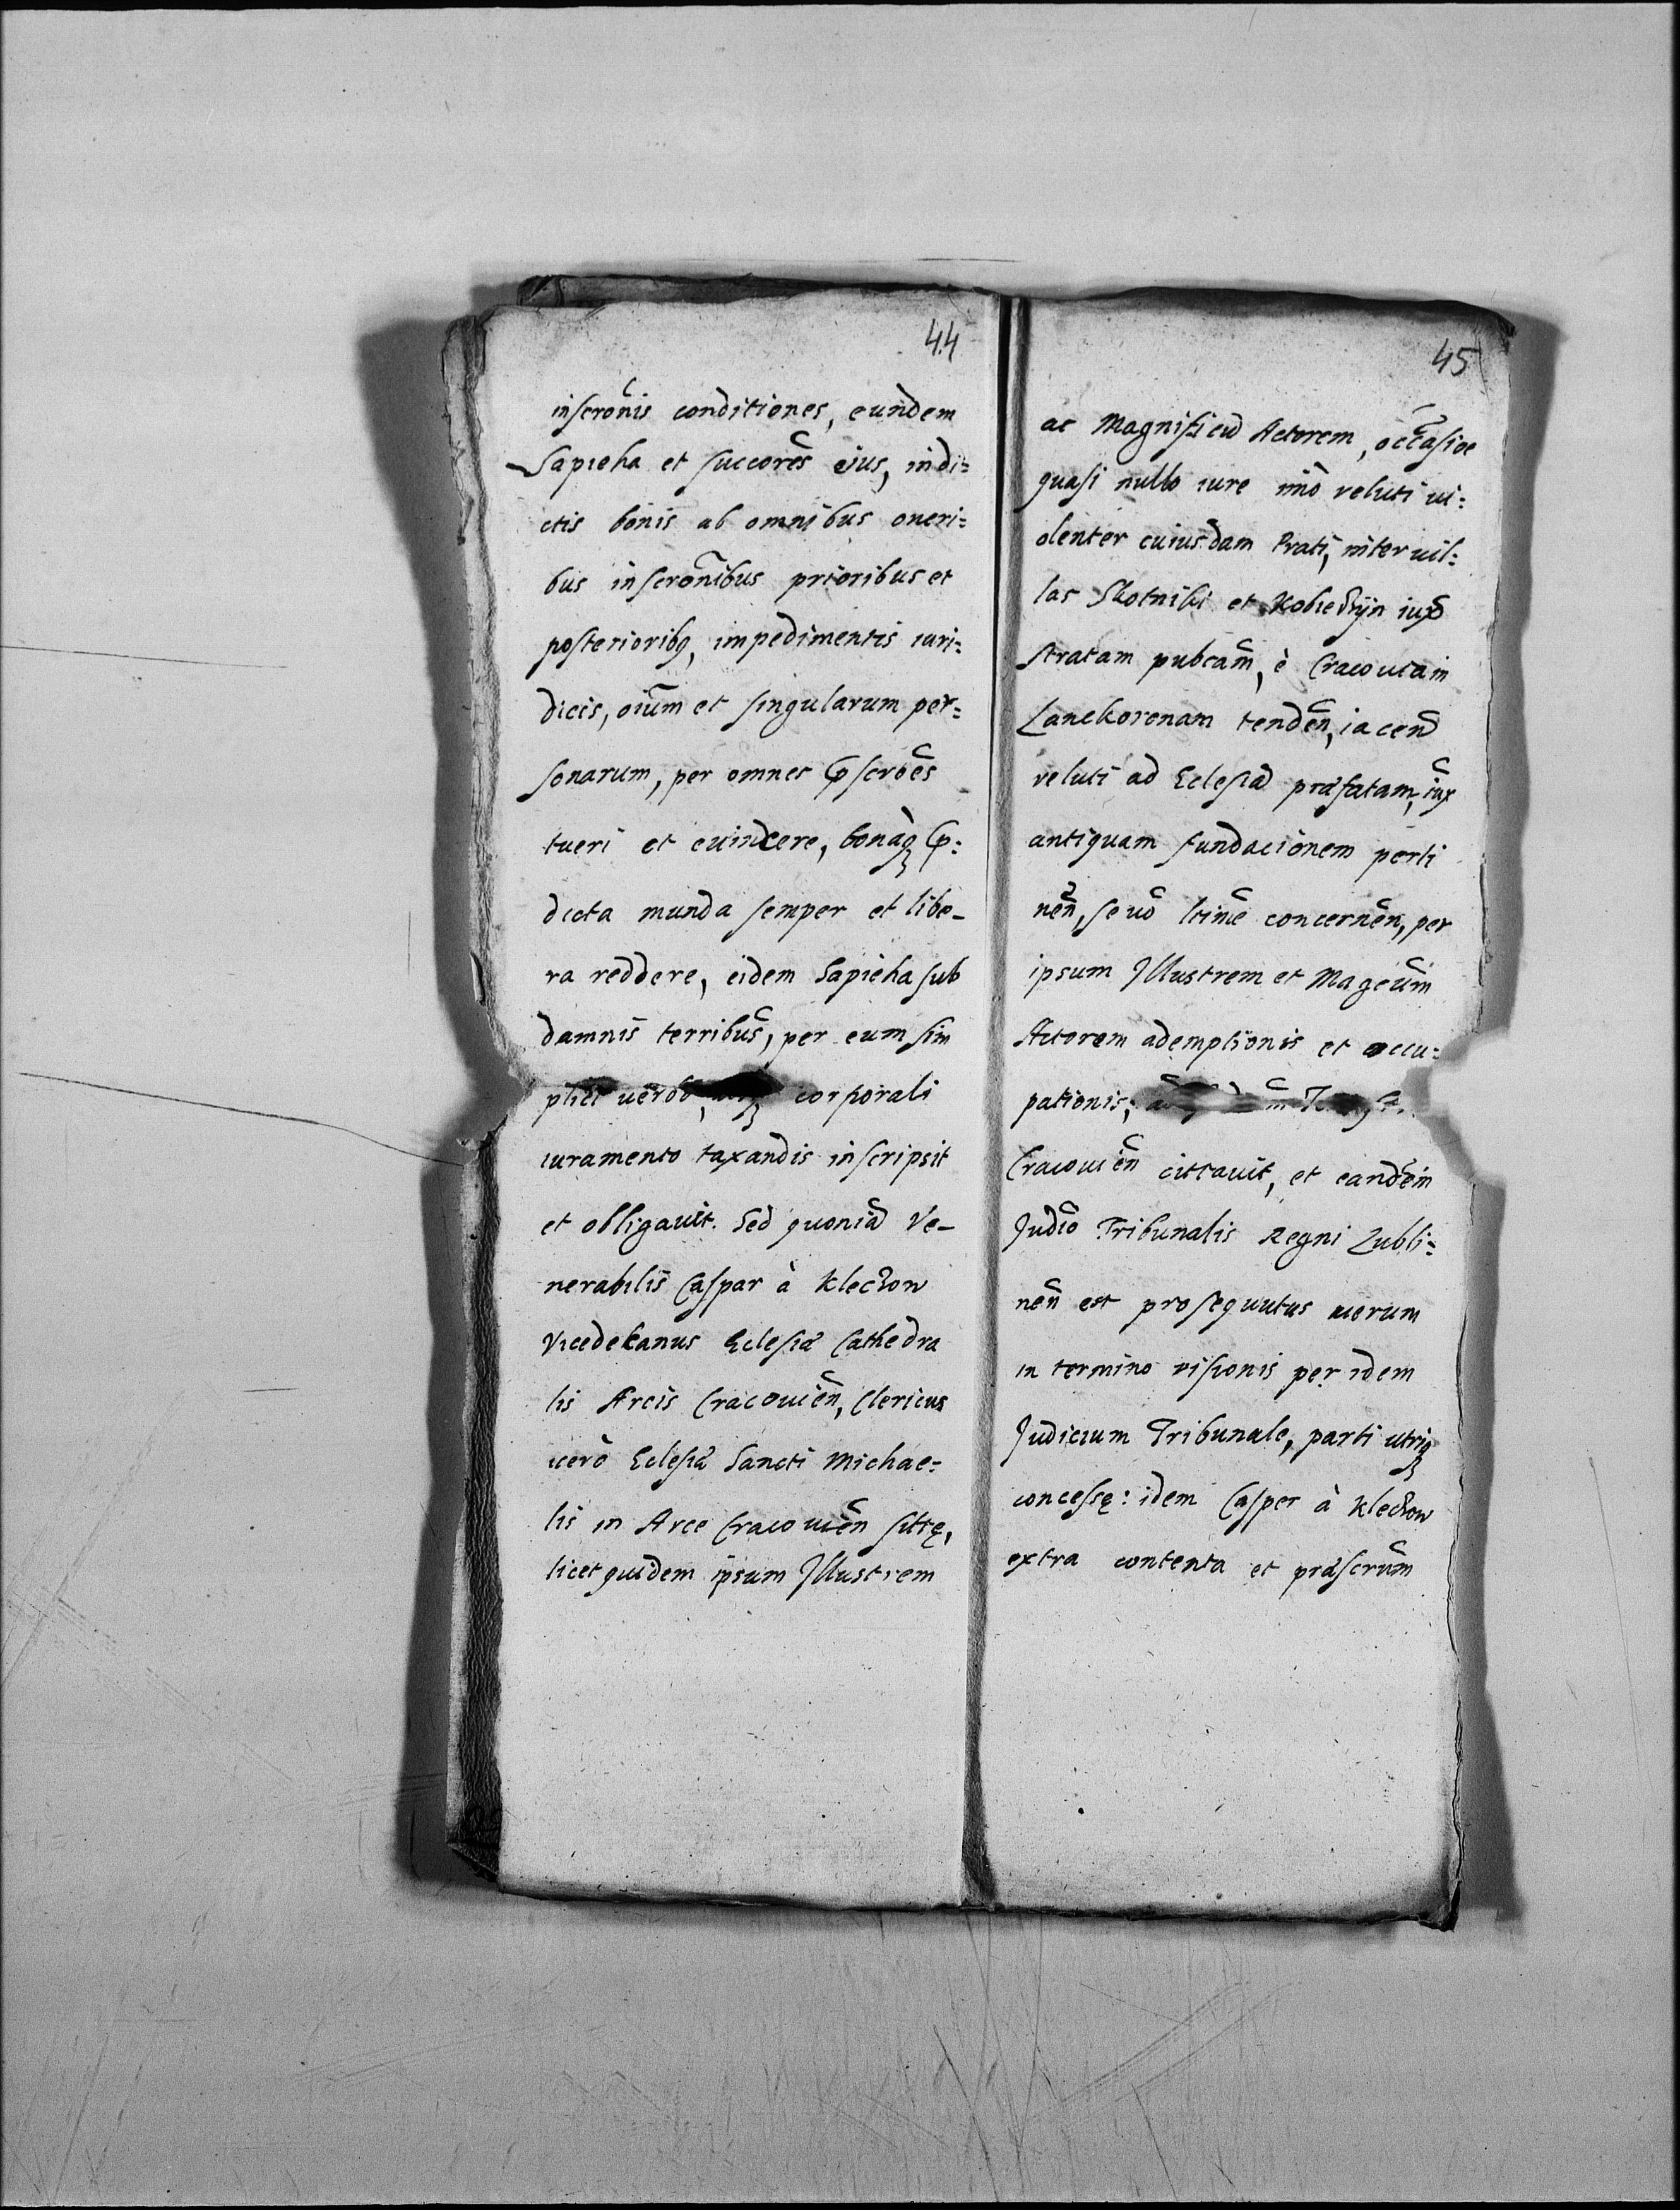 44
inscrōnis conditiones, eundem
Sapieha et succorēs eius, in di=
ctis bonis ab omnibus oneri=
bus inscrōnibus prioribus et
posterioribq, impedimentis iuri=
dicis, oiūm et singularum per=
sonarum, per omnes pscrōēs
tueri et euincere, bonaq p:
dicta munda semper et libe-
ra reddere, eidem Sapieha sub
damnis terribūs, per eum sim
plici corporali
iuramento taxandis inscripsit
et obligauit. Sed quoniā Ve-
nerabilis Caspar à Kleczow
Vicedekanus Eclesiæ Cathedra
lis Arcis Cracouiēn, Clericus
uerò Eclesiæ Sancti Michae=
lis in Arce Cracouiēn sitę,
licet quidem ipsum Illustrem
45
ac Magnificū Actorem, occāsioe
quasi nullo iure imō veluti ui=
olenter cuiusdam Prati, inter uil=
las Skotniki et Kobierzÿn iuxā
stratam pubcām, è Cracouia in
Lanckoronam tendēn, iacēn
veluti ad Eclesiā præfatam, iūx
antiquam fundacionem perti
nēn, seuō ltimē concernēn, per
ipsum Illustrem et Magcūm
Actorem ademptionis et occu=
pationis,
Cracouiēn cittauit, et eandēm
Judiō Tribunalis Regni Lubli=
nēn est prosequutus uerum
in termino visionis per idem
Judicium Tribunale, parti utriq
concessę: idem Casper à Kleczow
extra contenta et præscrūm